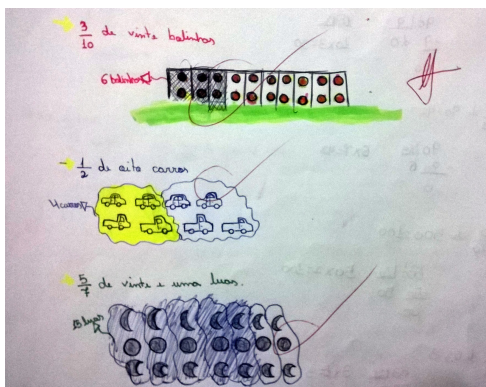 3/10 de vinte bolinhas
6 bolinhas
1/2 de oito carros
4 carros
5/7 de vinte e uma luas.
15 luas